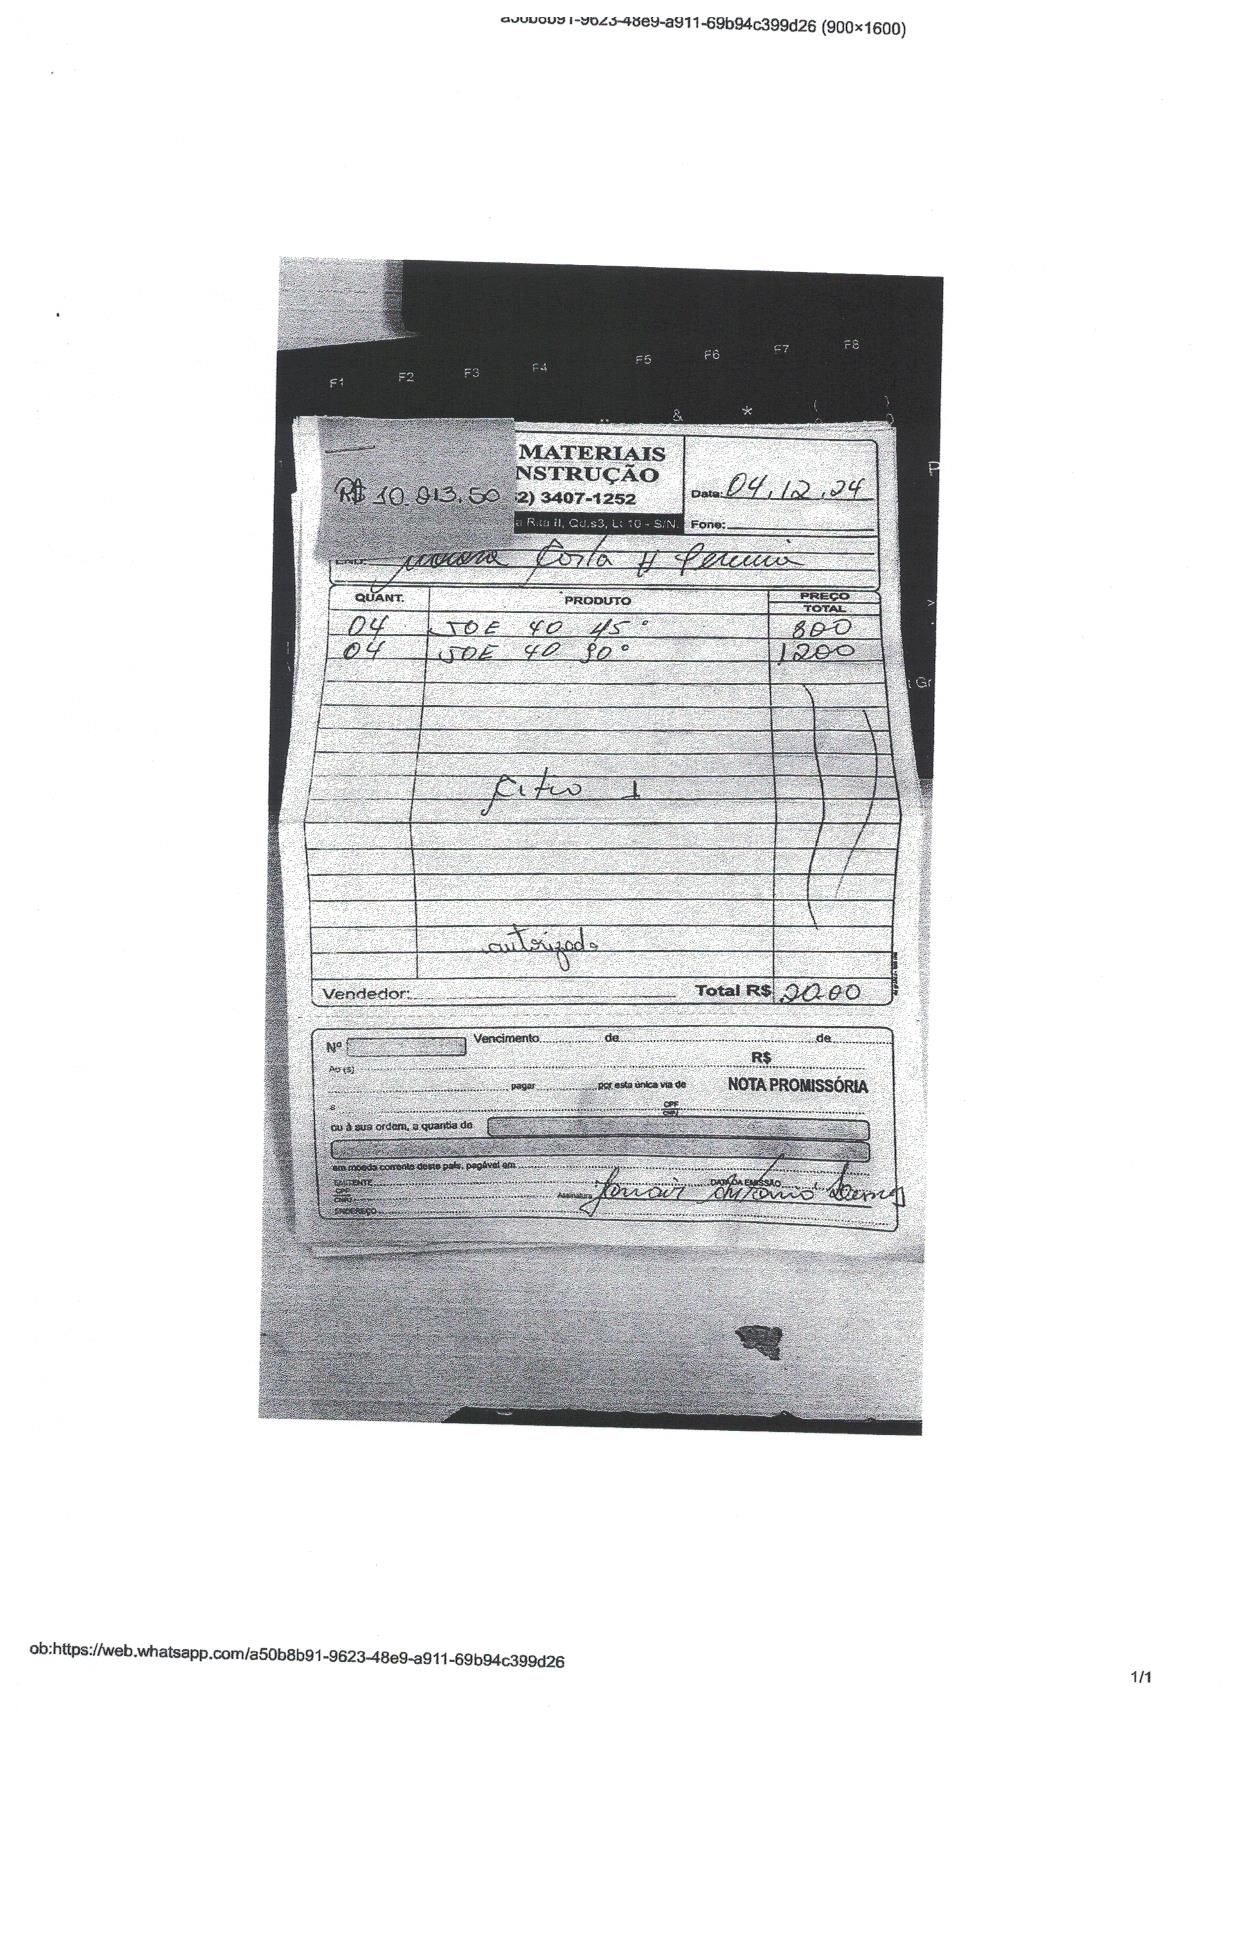 a50b8b91-9623-48e9-a911-69b94c399d26 (900×1600)
F1 F2 F3 F4 F5 F6 F7 F8
& * ( )
P
R$ 10.913,50
MATERIAIS
NSTRUÇÃO
2) 3407-1252
a Rita II, Qd.s3, Lt 10 - S/N.
Data: 04.12.24
Fone:
END: Costa
QUANT. PRODUTO PREÇO TOTAL
04 JOE 40 45° 800
04 JOE 40 90° 1200
Gr
1
autorizado
Vendedor: Total R$ 2000
Nº Vencimento de de
R$
Ao(s)
pagar por esta única via de NOTA PROMISSÓRIA
a CPF CNPJ
ou à sua ordem, a quantia de
em moeda corrente deste país, pagável em
EMITENTE DATA DA EMISSÃO
CPF CNPJ Assinatura Antonio
ENDEREÇO
ob:https://web.whatsapp.com/a50b8b91-9623-48e9-a911-69b94c399d26
1/1